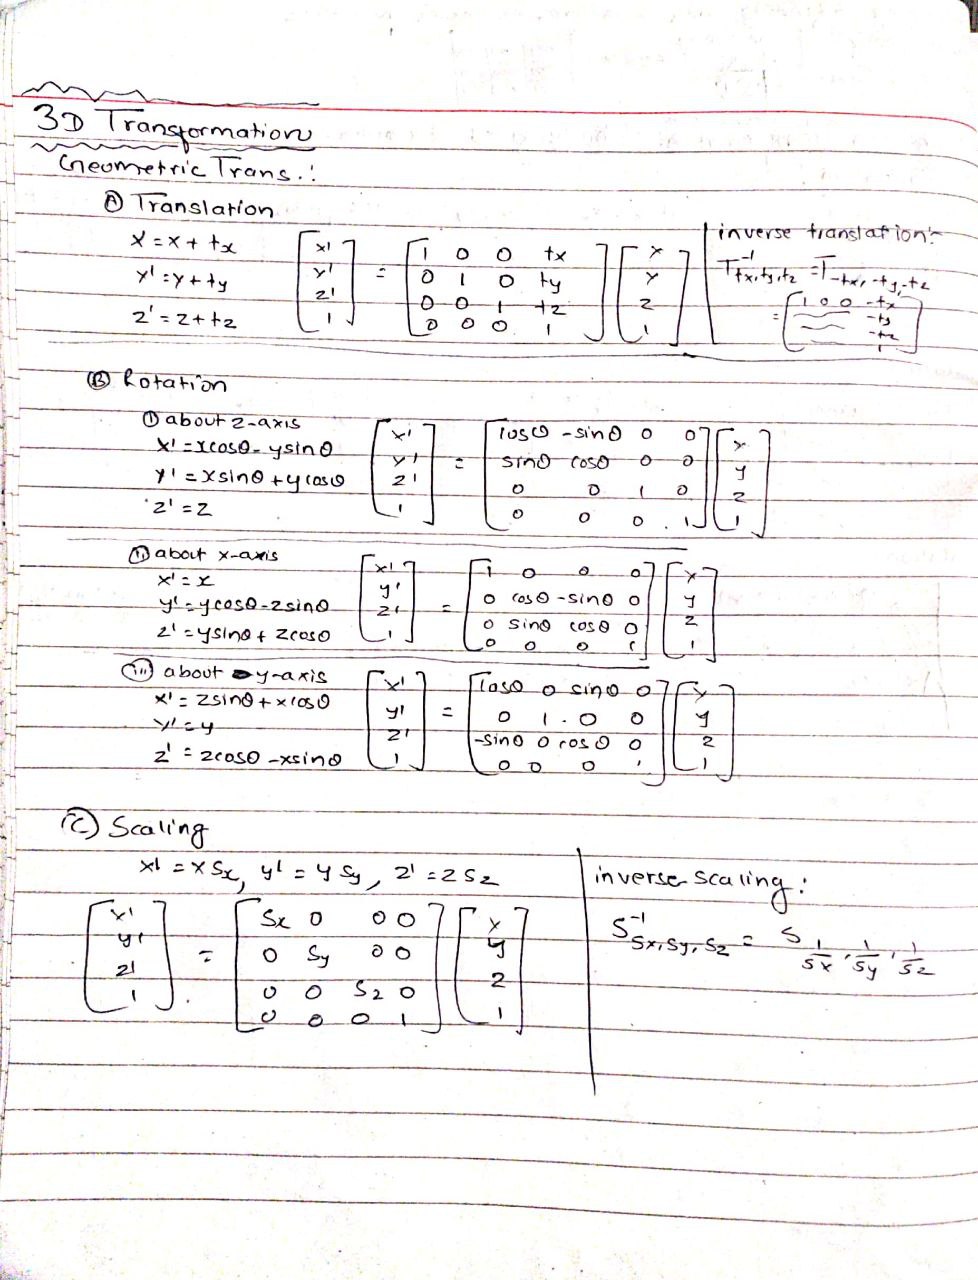 3D Transformation
Geometric Trans.:
Ⓐ Translation
x' = x + tx
y' = y + ty
z' = z + tz
[x' y' z' 1] = [1 0 0 tx
0 1 0 ty
0 0 1 tz
0 0 0 1] [x y z 1]
inverse translation:-
T⁻¹tx,ty,tz = T-tx, -ty, -tz
= [1 0 0 -tx
-ty
-tz
1]
Ⓑ Rotation
ⓘ about z-axis
x' = xcosθ - ysinθ
y' = xsinθ + ycosθ
z' = z
[x' y' z' 1] = [cosθ -sinθ 0 0
sinθ cosθ 0 0
0 0 1 0
0 0 0 1] [x y z 1]
(ii) about x-axis
x' = x
y' = ycosθ - zsinθ
z' = ysinθ + zcosθ
[x' y' z' 1] = [1 0 0 0
0 cosθ -sinθ 0
0 sinθ cosθ 0
0 0 0 1] [x y z 1]
(iii) about y-axis
x' = zsinθ + xcosθ
y' = y
z' = zcosθ - xsinθ
[x' y' z' 1] = [cosθ 0 sinθ 0
0 1 0 0
-sinθ 0 cosθ 0
0 0 0 1] [x y z 1]
Ⓒ Scaling
x' = x Sx, y' = y Sy, z' = z Sz
[x' y' z' 1] = [Sx 0 0 0
0 Sy 0 0
0 0 Sz 0
0 0 0 1] [x y z 1]
inverse scaling:
S⁻¹Sx, Sy, Sz = S 1/Sx, 1/Sy, 1/Sz